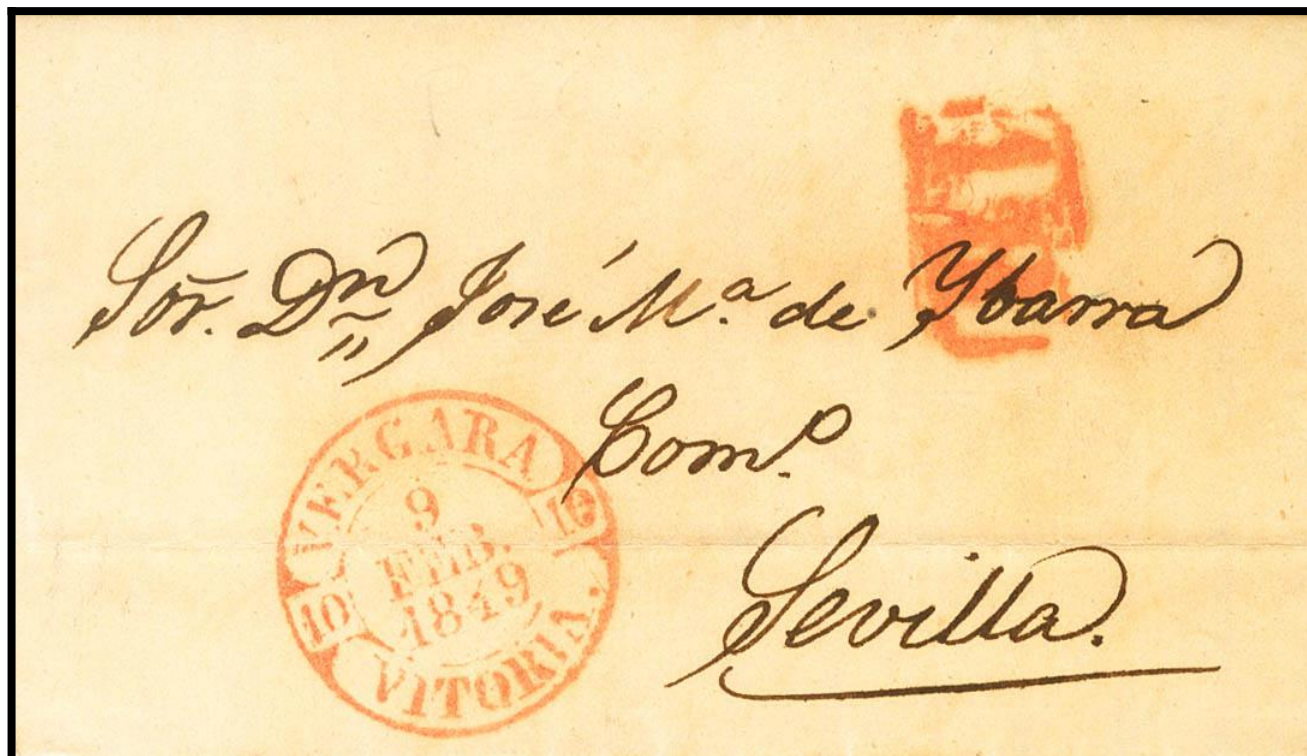 Sor. Dn José Ma. de Ybarra
Como.
Sevilla.
VERGARA
10
9
FEB.
1849
10
VITORIA.